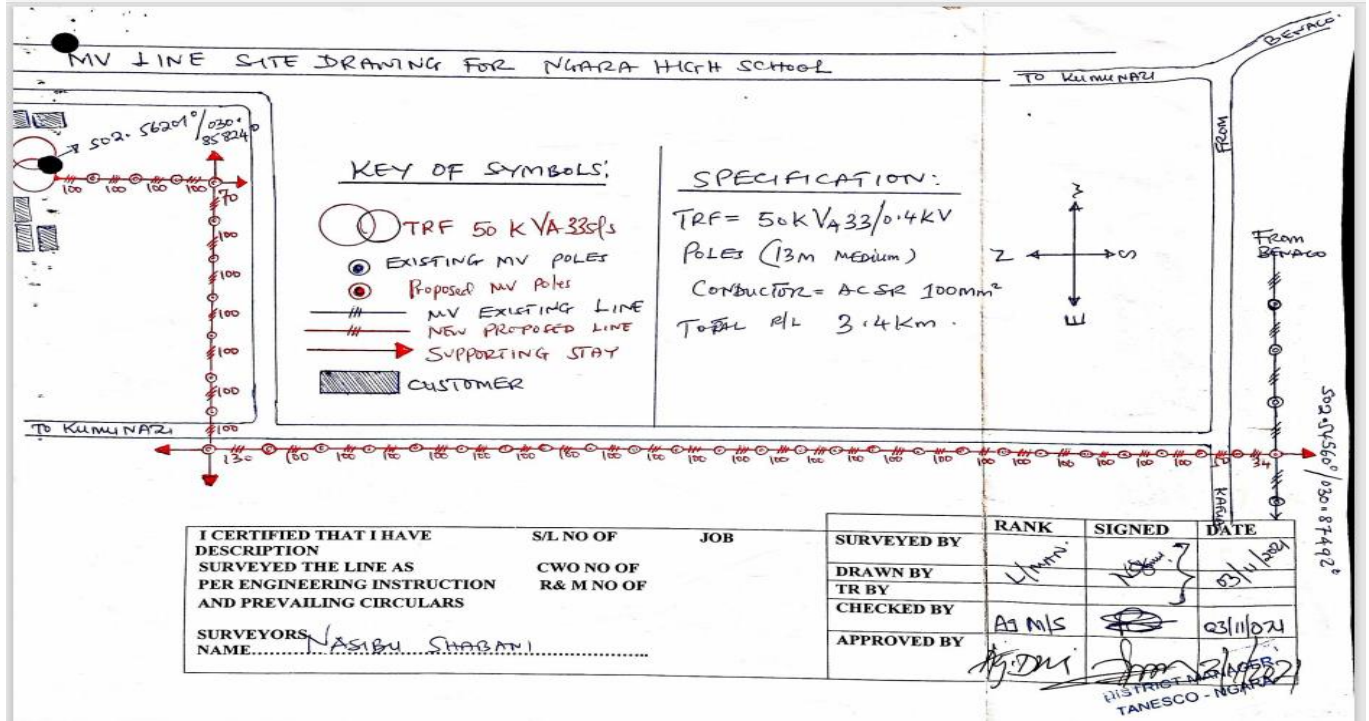 BENACO.
MV LINE SITE DRAWING FOR NGARA HIGH SCHOOL
TO KUMUNAZI
FROM
S02.56201°/030.
85824°
100 100 100 100
70
100
100
100
100
100
100
KEY OF SYMBOLS:
TRF 50 KVA 33
EXISTING MV POLES
Proposed MV Poles
MV EXISTING LINE
NEW PROPOSED LINE
SUPPORTING STAY
CUSTOMER
SPECIFICATION:
TRF = 50KVA 33/0.4KV
POLES (13M MEDIUM)
CONDUCTOR = ACSR 100mm²
TOTAL R/L 3.4Km.
N S
E
From
BENACO
S02.54560°/030.87492°
TO KUMUNAZI
130 100 100 100 100 100 100 100 100 100 100 100 100 100 100 100 100 100 100 100 50 34
I CERTIFIED THAT I HAVE S/L NO OF JOB
DESCRIPTION
SURVEYED THE LINE AS CWO NO OF
PER ENGINEERING INSTRUCTION R& M NO OF
AND PREVAILING CIRCULARS
SURVEYORS
NAME NASIBU SHABANI
RANK SIGNED DATE
SURVEYED BY
DRAWN BY L/MAN. 03/11/2021
TR BY
CHECKED BY 03/11/021
APPROVED BY
DISTRICT MANAGER
TANESCO - NGARA